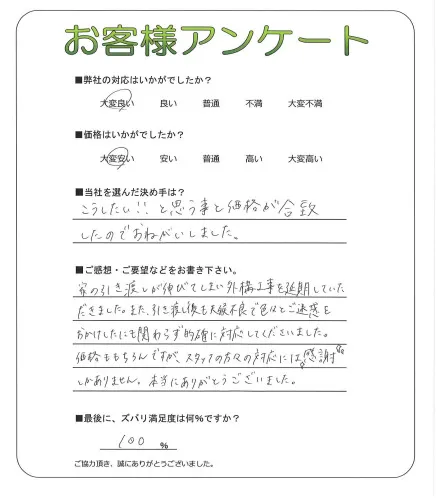 お客様アンケート
■弊社の対応はいかがでしたか？
大変良い 良い 普通 不満 大変不満
■価格はいかがでしたか？
大変安い 安い 普通 高い 大変高い
■当社を選んだ決め手は？
こうしたい!! と思う事と価格が合致
したのでおねがいしました。
■ご感想・ご要望などをお書き下さい。
家の引き渡しが伸びてしまい外構工事を延期していた
だきました。また、引き渡し後も天候不良で色々とご迷惑を
おかけしたにも関わらず的確に対応してくださいました。
価格ももちろんですが、スタッフの方々の対応には感謝
しかありません。本当にありがとうございました。
■最後に、ズバリ満足度は何%ですか？
100 %
ご協力頂き、誠にありがとうございました。